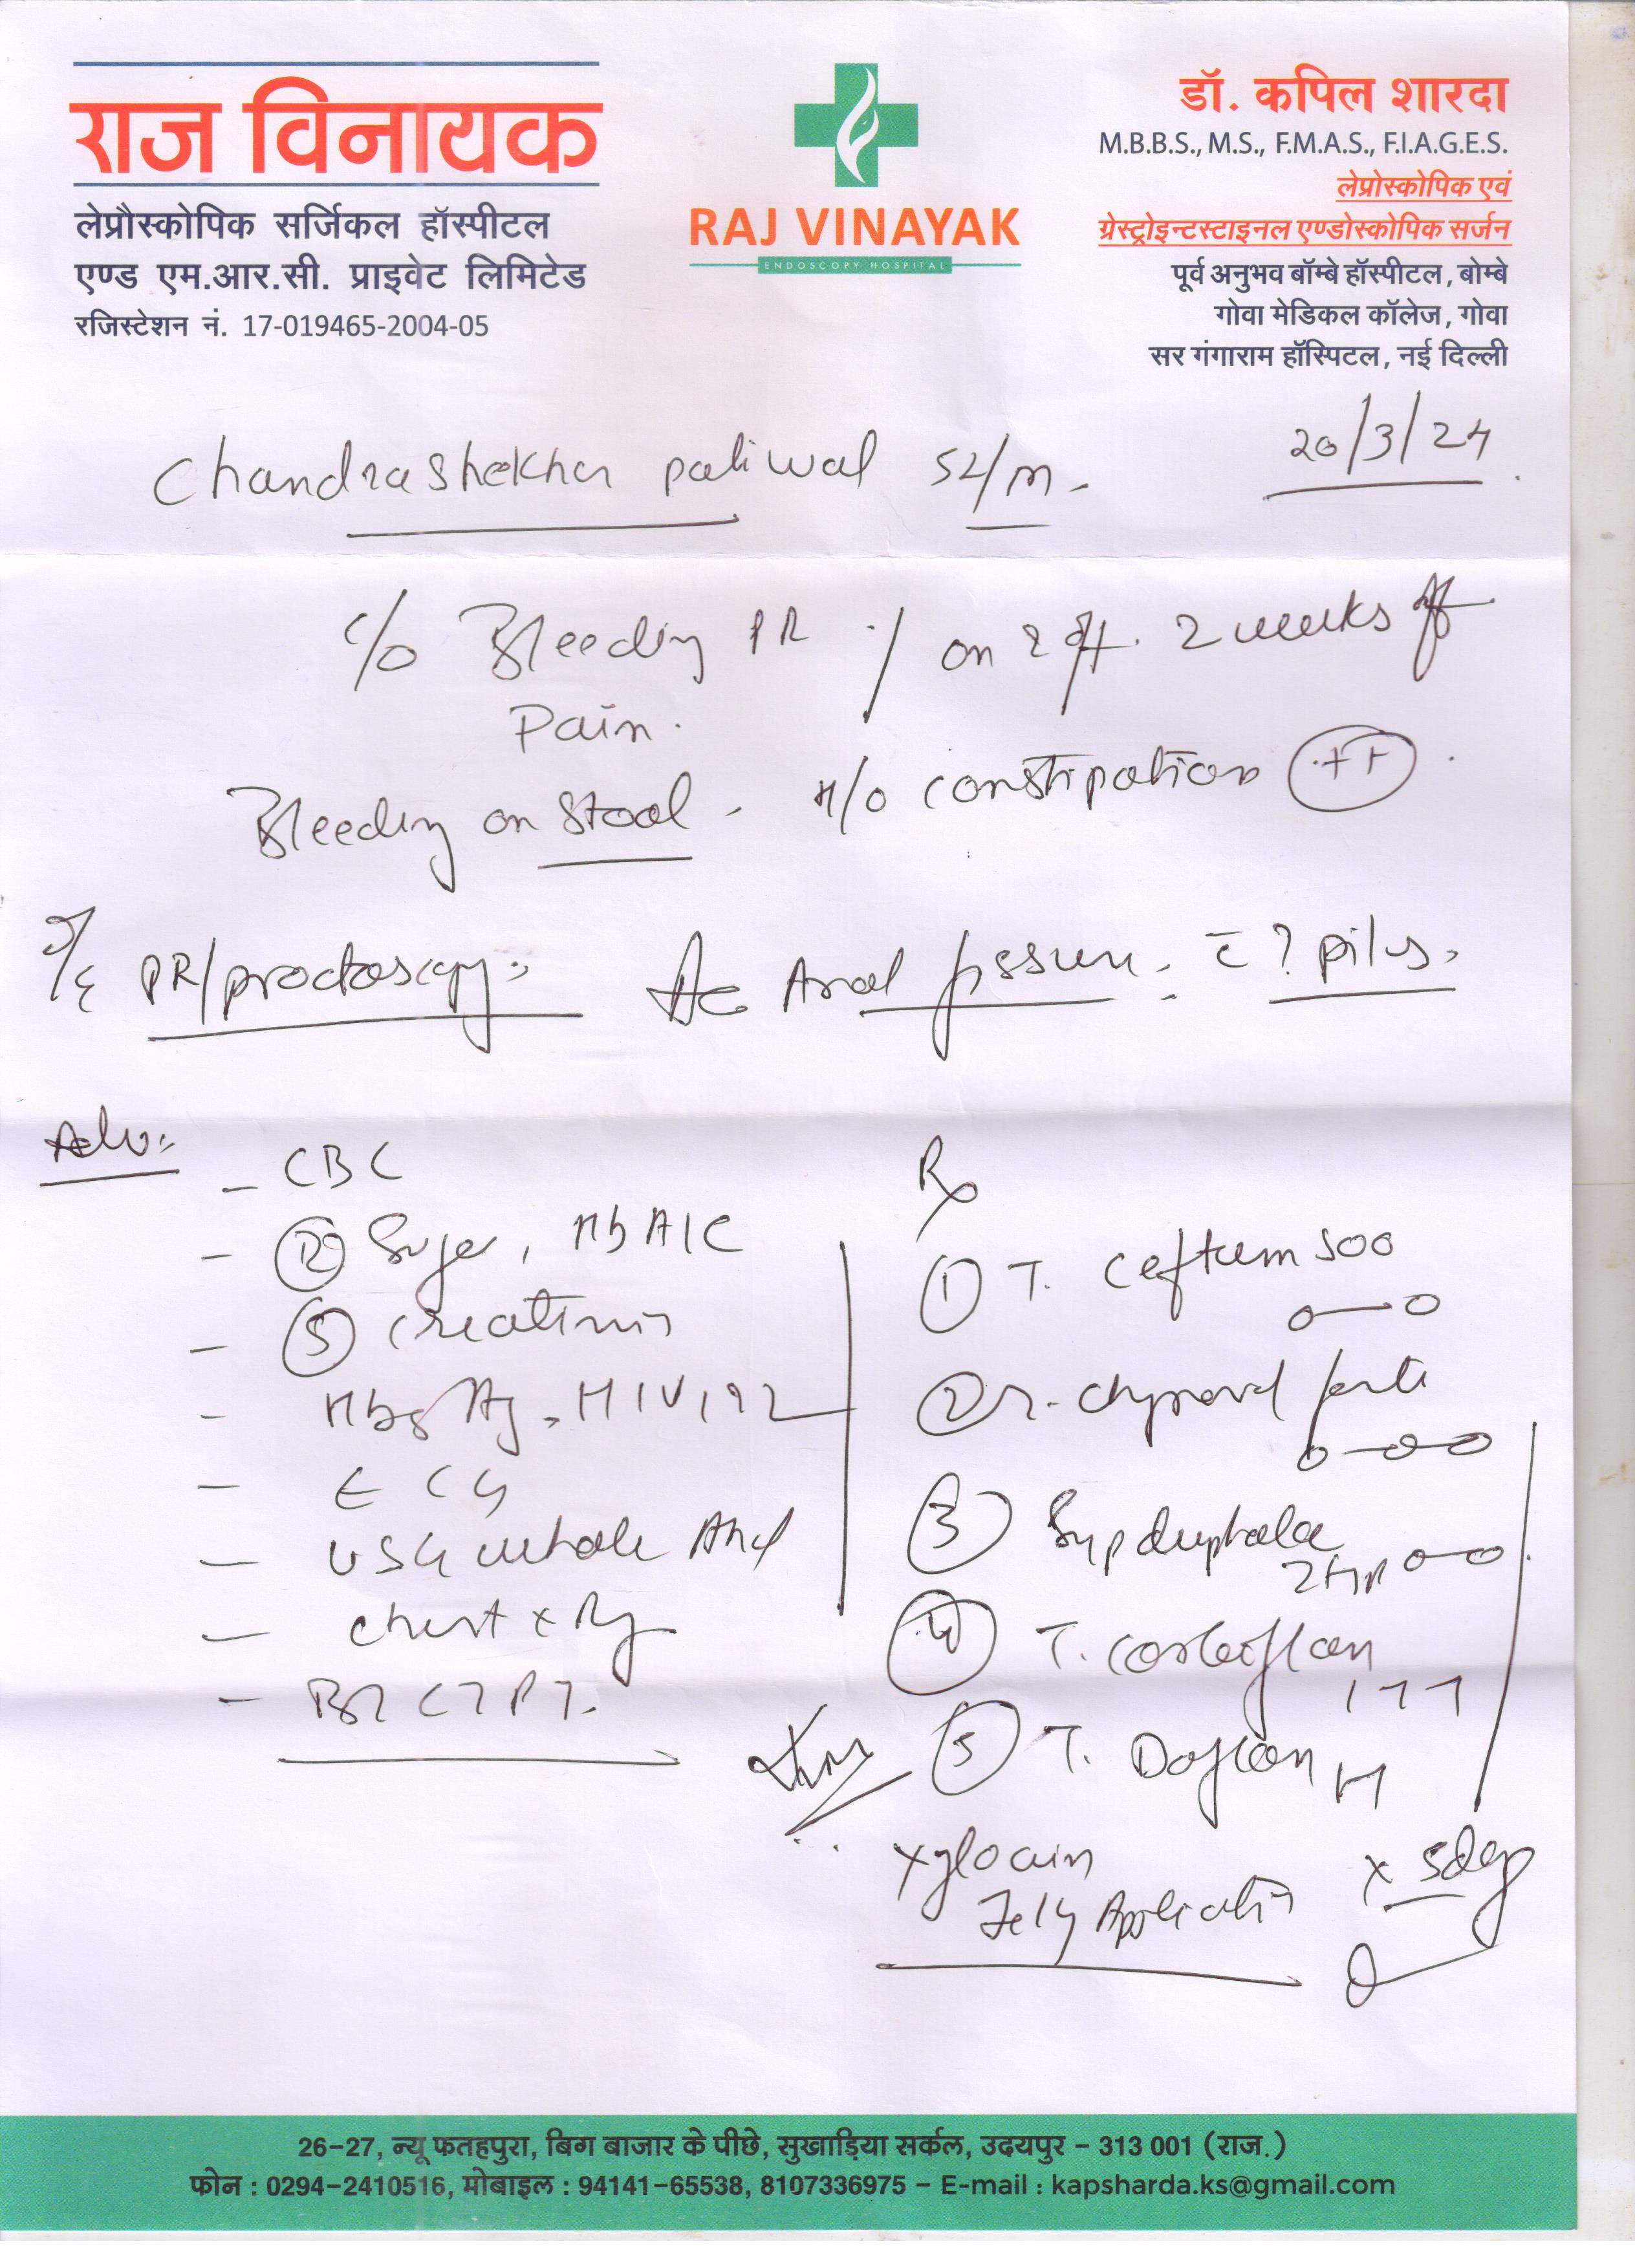 राज विनायक
लेप्रौस्कोपिक सर्जिकल हॉस्पीटल
एण्ड एम.आर.सी. प्राइवेट लिमिटेड
रजिस्टेशन नं. 17-019465-2004-05
RAJ VINAYAK
ENDOSCOPY HOSPITAL
डॉ. कपिल शारदा
M.B.B.S., M.S., F.M.A.S., F.I.A.G.E.S.
लेप्रोस्कोपिक एवं
ग्रेस्ट्रोइन्टस्टाइनल एण्डोस्कोपिक सर्जन
पूर्व अनुभव बॉम्बे हॉस्पीटल, बोम्बे
गोवा मेडिकल कॉलेज, गोवा
सर गंगाराम हॉस्पिटल, नई दिल्ली
20/3/24
Chandrashekhar paliwal 52/m
c/o Bleeding PR / on & off. 2 weeks
Pain.
Bleeding on stool - H/o constipation ++
O/E PR/proctoscopy: Ac Anal fissure. c̄ ? piles.
Adv:
- CBC
- R Sugar, HbA1C
- S creatinin
- HbsAg, HIV 1,2
- ECG
- USG whole Abd
- chest x Ray
- BT CT PT.
Rx
1 T. Ceftum 500
o—o
2 T. chymoral forte
o-o-o
3 Syp duphalac
o-o
4 T.
5 T.
Xylocain
Jelly Application
x 5day
26-27, न्यू फतहपुरा, बिग बाजार के पीछे, सुखाड़िया सर्कल, उदयपुर - 313 001 (राज.)
फोन : 0294-2410516, मोबाइल : 94141-65538, 8107336975 - E-mail : kapsharda.ks@gmail.com